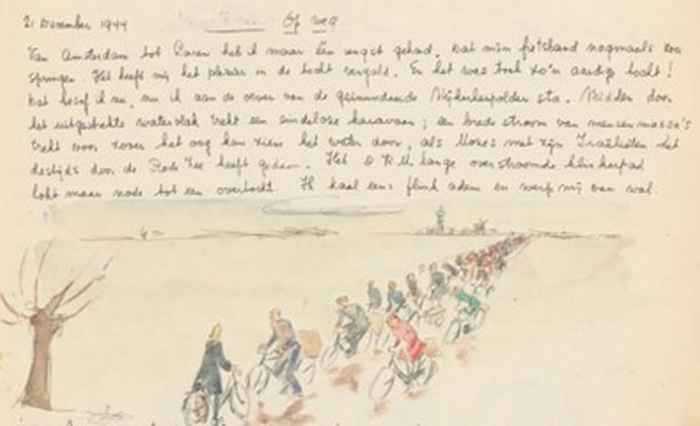 21 December 1944 Op weg
Van Amsterdam tot Laren heb ik maar één angst gehad, dat mijn fietsband nogmaals zou
springen. Het heeft mij het plezier in de tocht vergald. En het was toch zo'n aardige tocht!
Dat besef ik nu, nu ik aan de oever van de geïnundeerde Nijkerkerpolder sta. Midden door
het uitgestrekte watervlak trekt een eindeloze karavaan; een brede stroom van mensenmassa's
trekt voor zover het oog kan zien het water door, als Mozes met zijn Israëlieten dit
destijds door de Rode Zee heeft gedaan. Het K.M. lange overstroomde klinkerpad
lokt maar node tot een overtocht. Ik haal eens flink adem en werp mij van wal.